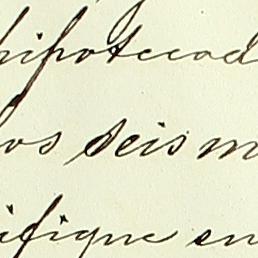 hipotecad
os seis m
ifique en